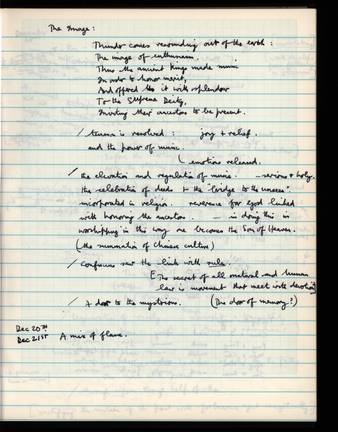 The Image:
Thunder comes resounding out of the earth:
The image of enthusiasm.
Thus the ancient kings made music
In order to honor merit,
And offered it with splendor
To the Supreme Deity,
Inviting their ancestors to be present.
/ tension is resolved: joy + relief.
and the power of music.
emotions released.
/ the elevation and regulation of music. — serious + holy.
the celebration of deeds + the "bridge to the unseen"
incorporated in religion. reverence for god linked
with honoring the ancestors. — in doing this in
worshipping in this way one becomes the Son of Heaven.
(the summation of Chinese culture)
/ Confucius saw the link with rule.
[The secret of all natural and human
law is movement that meets with devotion
/ A door to the mysterious. (The door of memory?)
Dec 20th
Dec 21st A mix of flame.